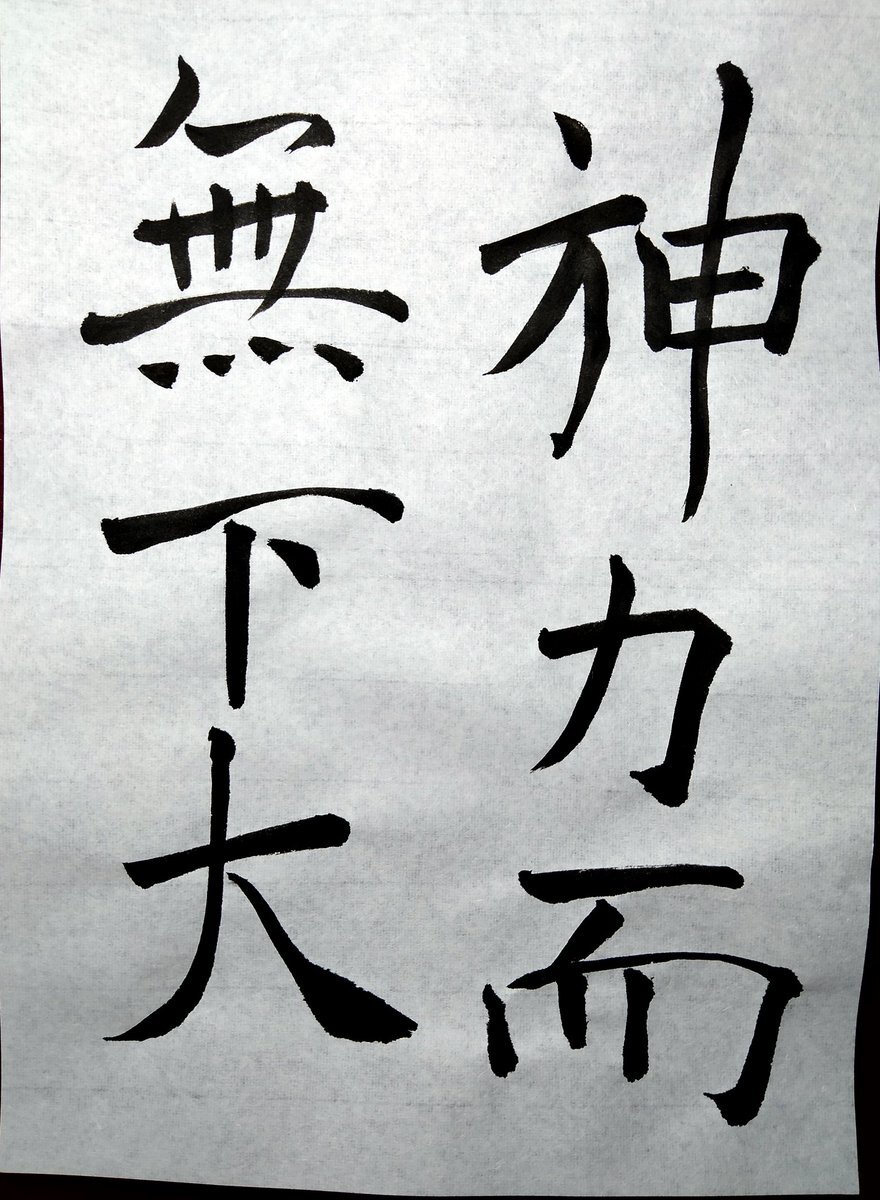 神力而
無下大